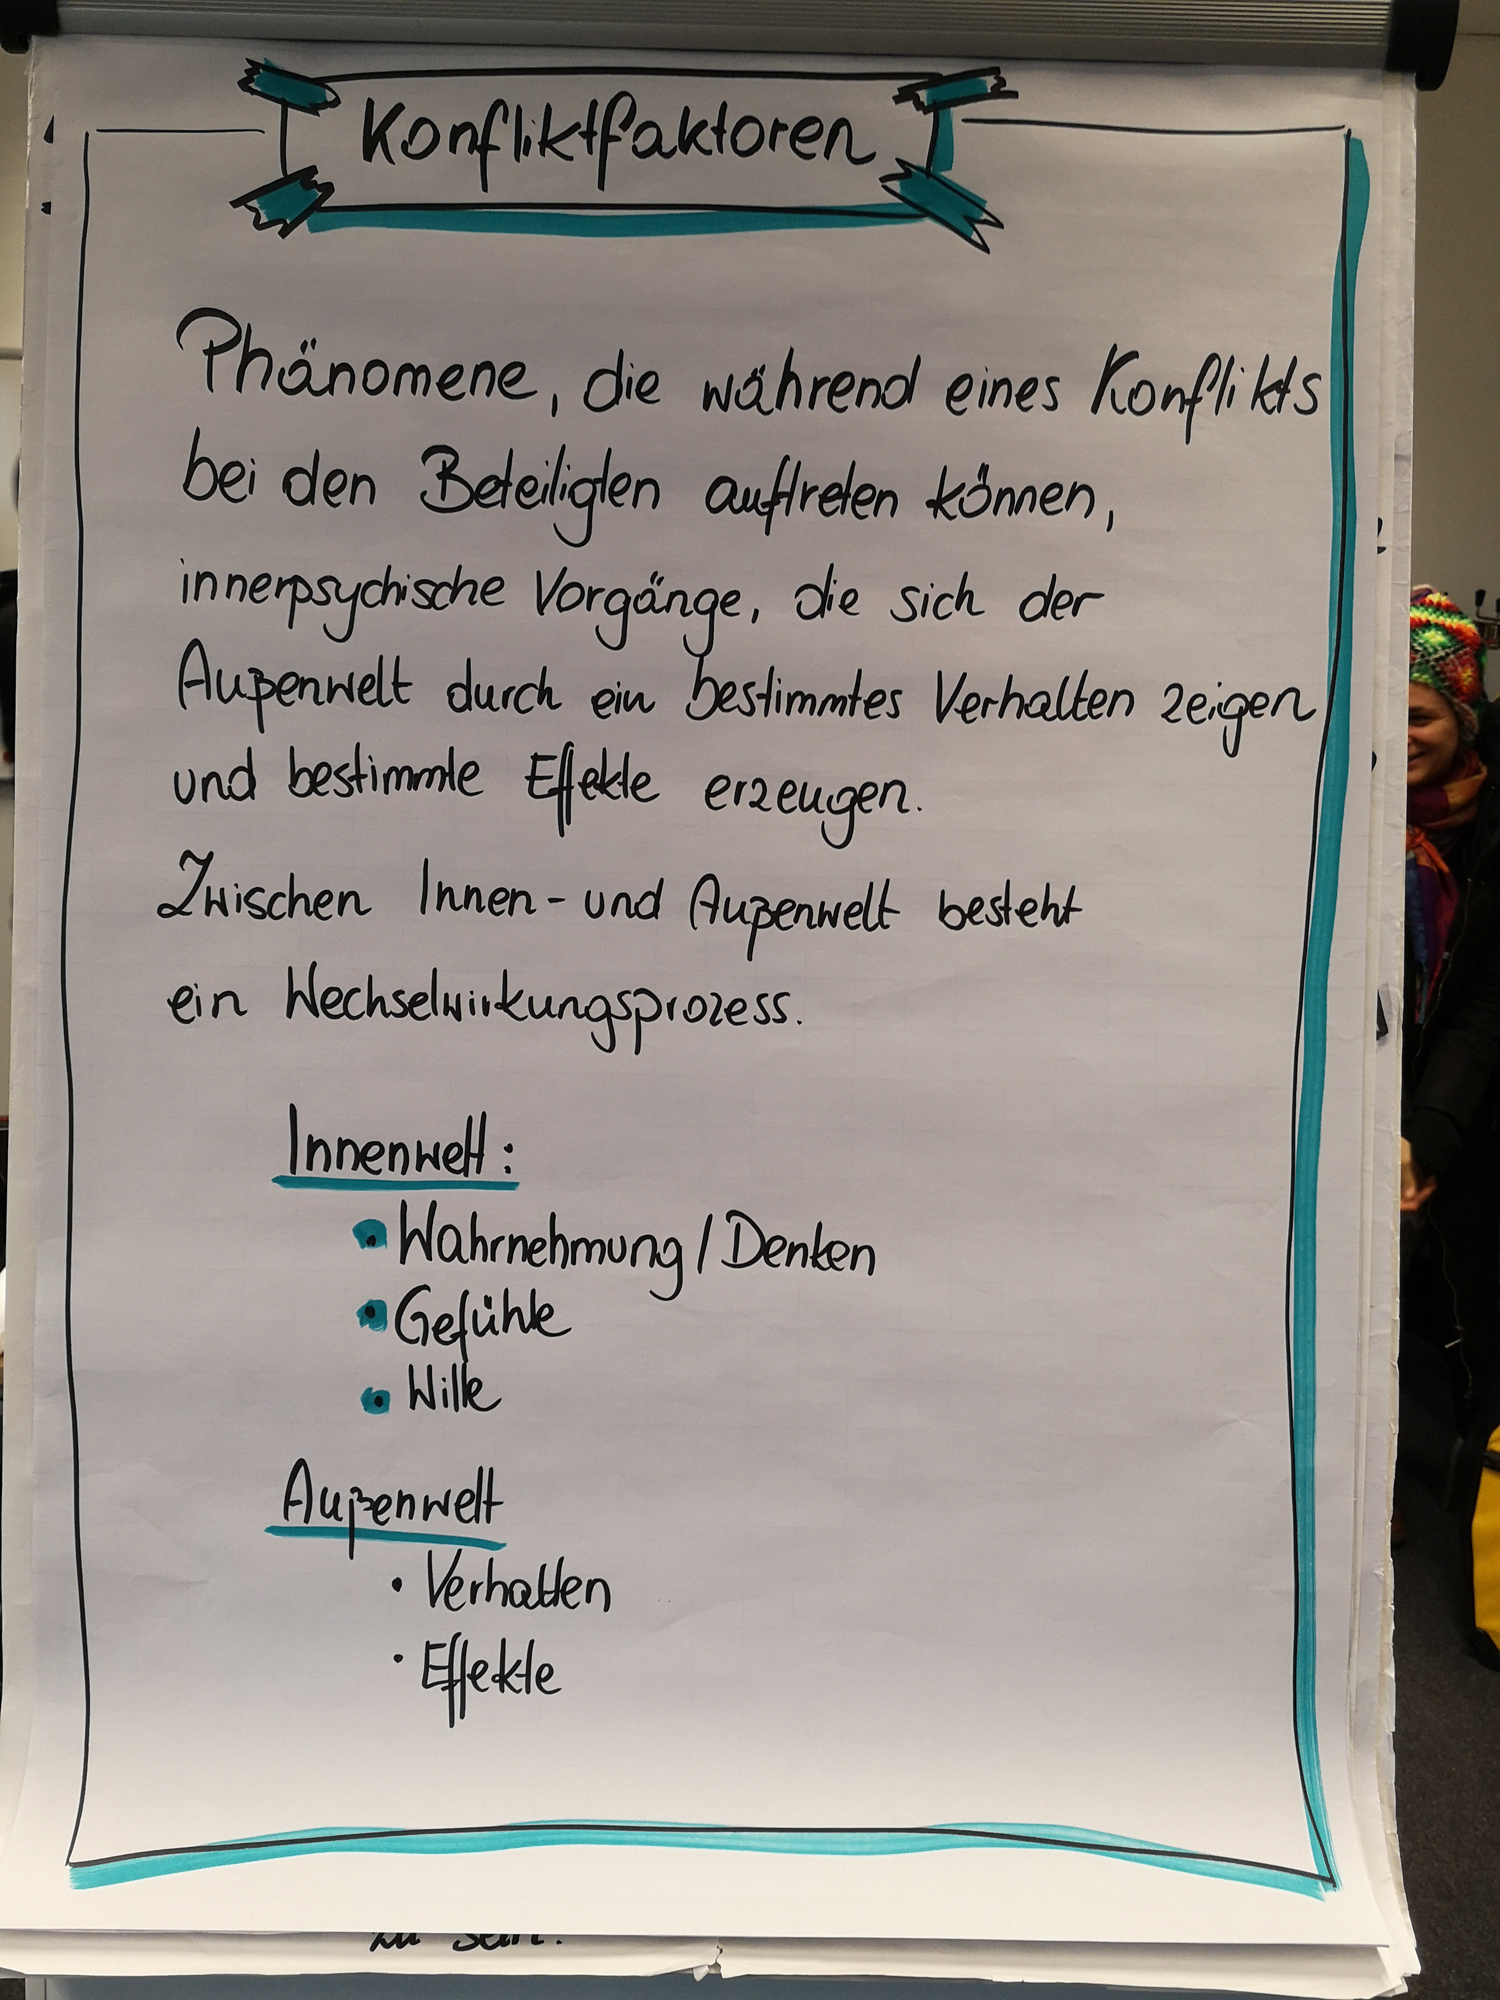 Konfliktfaktoren
Phänomene, die während eines Konflikts
bei den Beteiligten auftreten können,
innerpsychische Vorgänge, die sich der
Außenwelt durch ein bestimmtes Verhalten zeigen
und bestimmte Effekte erzeugen.
Zwischen Innen- und Außenwelt besteht
ein Wechselwirkungsprozess.
Innenwelt:
• Wahrnehmung/Denken
• Gefühle
• Wille
Außenwelt
• Verhalten
• Effekte
zu sein.